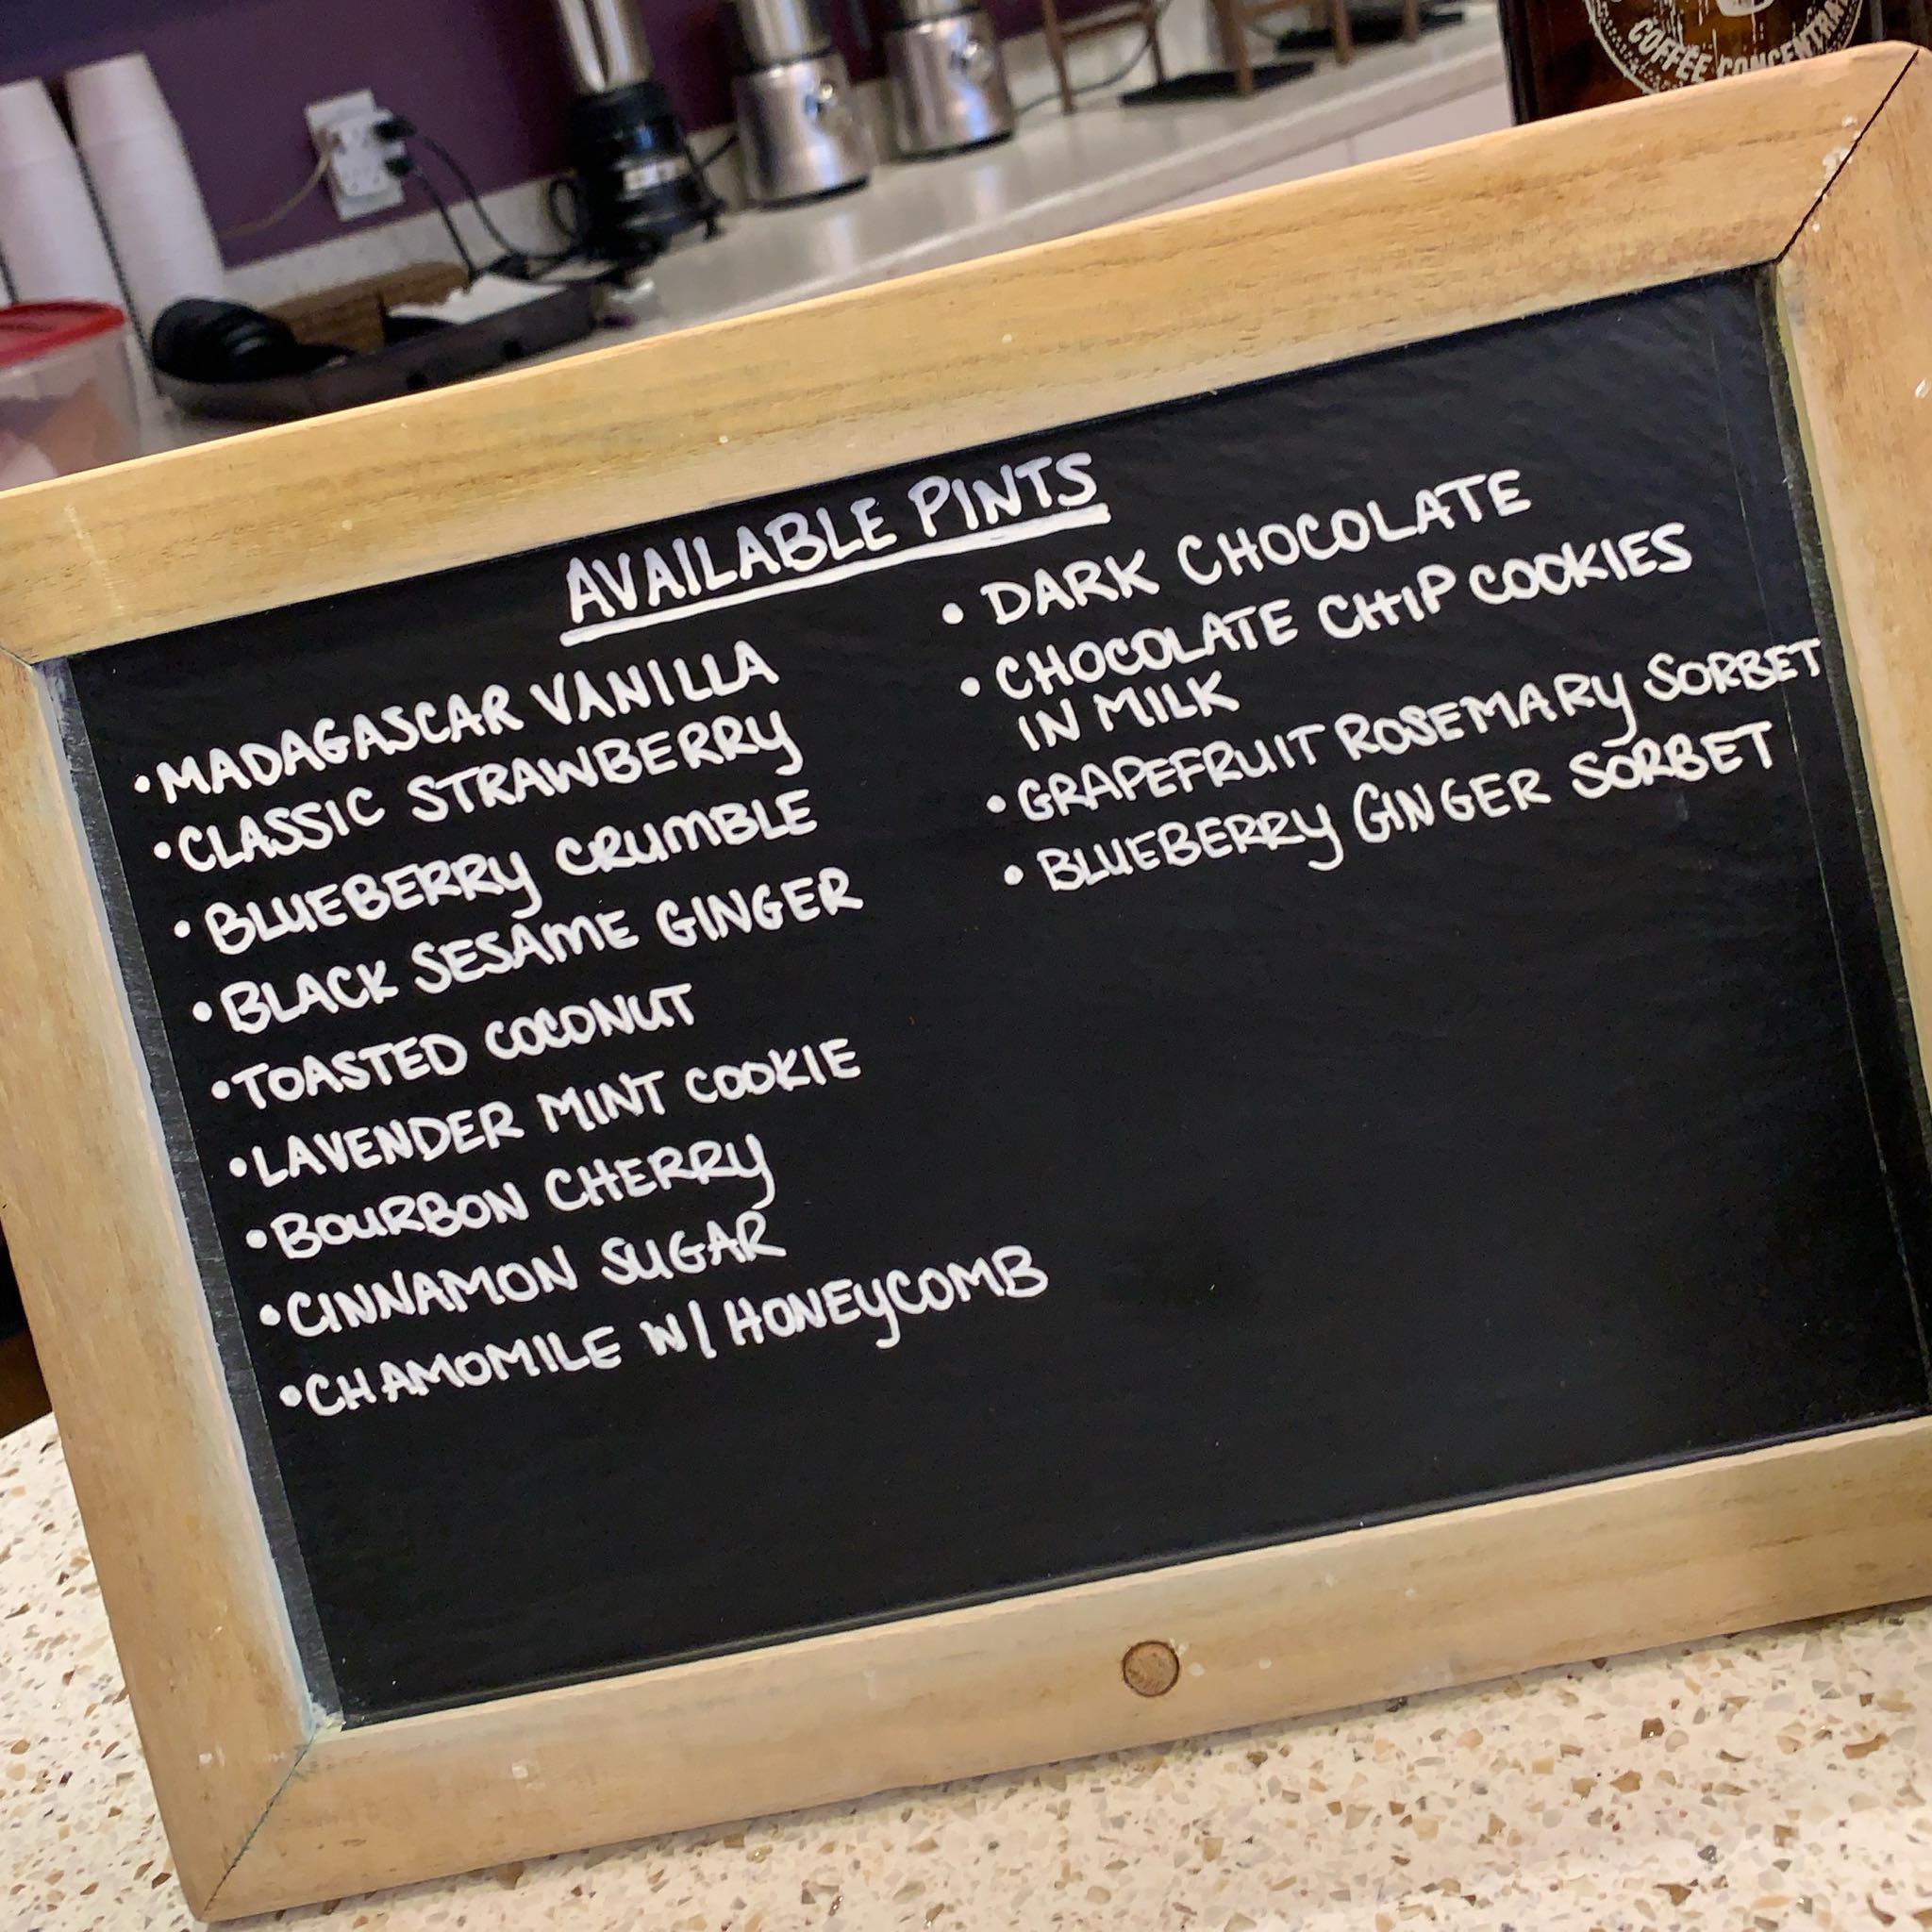 COFFEE CONCENTRATE
AVAILABLE PINTS
• MADAGASCAR VANILLA
• CLASSIC STRAWBERRY
• BLUEBERRY CRUMBLE
• BLACK SESAME GINGER
• TOASTED COCONUT
• LAVENDER MINT COOKIE
• BOURBON CHERRY
• CINNAMON SUGAR
• CHAMOMILE W/ HONEYCOMB
• DARK CHOCOLATE
• CHOCOLATE CHIP COOKIES
IN MILK
• GRAPEFRUIT ROSEMARY SORBET
• BLUEBERRY GINGER SORBET